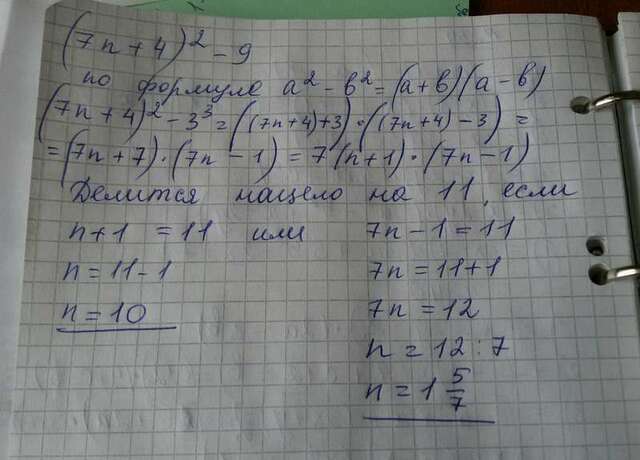 (7n+4)² - 9
по формуле a² - b² = (a+b)(a-b)
(7n+4)² - 3³ = ((7n+4)+3)·((7n+4)-3) =
= (7n+7)·(7n-1) = 7(n+1)·(7n-1)
Делится нацело на 11, если
n+1 = 11 или 7n-1 = 11
n = 11-1 7n = 11+1
n = 10 7n = 12
n = 12 : 7
n = 1 5/7